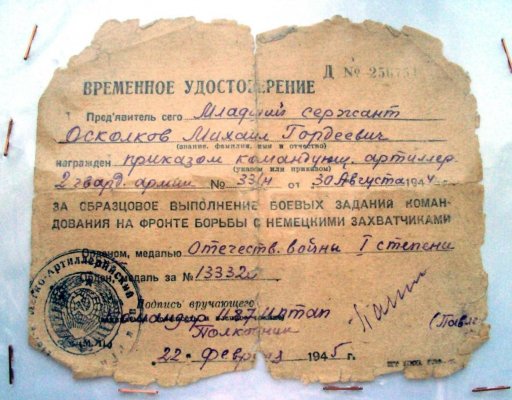 Д № 256751
ВРЕМЕННОЕ УДОСТОВЕРЕНИЕ
Пред'явитель сего Младший сержант
Осколков Михаил Гордеевич
(звание, фамилия, имя и отчество)
награжден приказом командующ. артиллер.
(указом или приказом)
2 гвард. армии № 33/н от 30 Августа 194
ЗА ОБРАЗЦОВОЕ ВЫПОЛНЕНИЕ БОЕВЫХ ЗАДАНИЙ КОМАН-
ДОВАНИЯ НА ФРОНТЕ БОРЬБЫ С НЕМЕЦКИМИ ЗАХВАТЧИКАМИ
Орденом, медалью Отечеств. войны I степени
Орден, медаль за № 13332
Подпись вручающего
Командир 1187 иптап
Полковник
(Павл
22 февраля 1945 г.